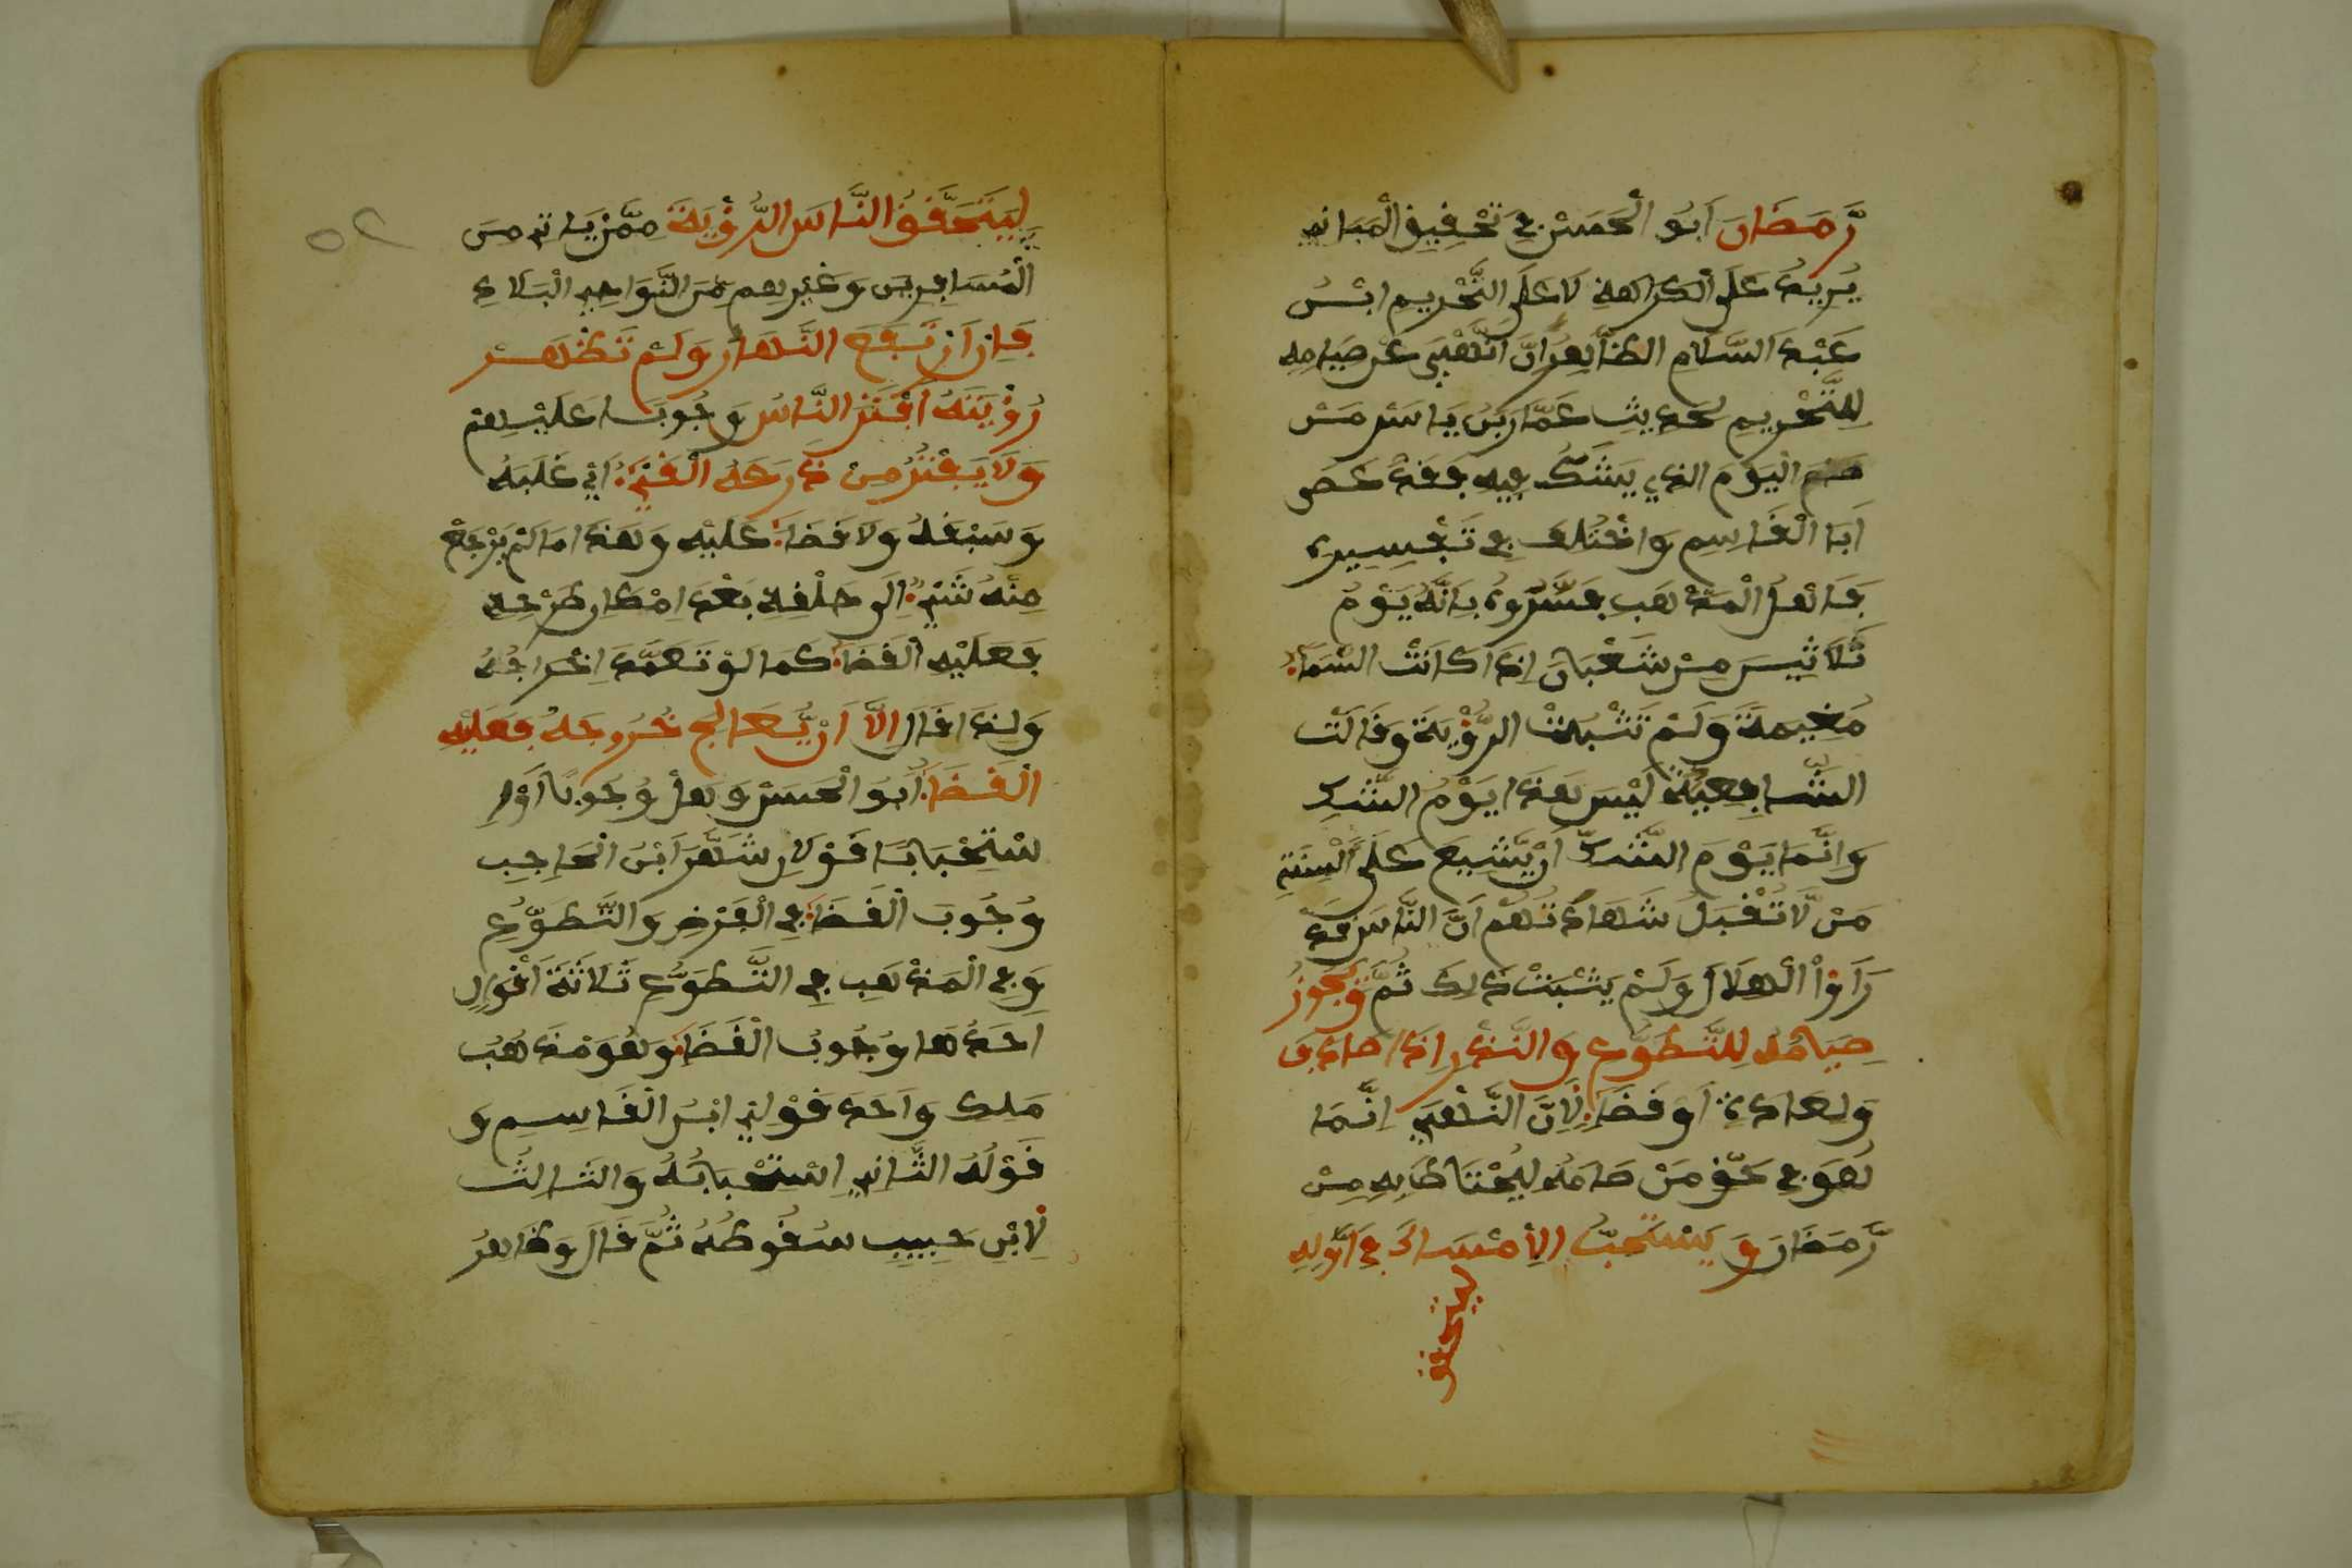 رَّمَضَانَ اَبُو الْحَسَنْ فِي تَحْقِيقِ الْمَبَانِي
يُرِيدُ عَلَى الْكَرَاهَةِ لَا عَلَى التَّحْرِيمِ ابْنُ
عَبْدِ السَّلَامِ الظَّاهِرُ اَنَّ النَّهْيَ عَنْ صِيَامِهِ
لِلتَّحْرِيمِ لِحَدِيثِ عَمَّارِ بْنِ يَاسِرٍ مَنْ
صَامَ الْيَوْمَ الذِي يَشُكُّ فِيهِ فَقَدْ عَصَى
اَبَا الْقَاسِمِ وَاخْتُلِفَ فِي تَفْسِيرِهِ
فَاَهْلُ الْمَذْهَبِ فَسَّرُوهُ بِاَنَّهُ يَوْمُ
ثَلَاثِينَ مِنْ شَعْبَانَ اِذَا كَانَتْ السَّمَاءُ
مُغِيمَةً وَلَمْ تَثْبُتْ الرُّؤْيَةُ وَقَالَتْ
الشَّافِعِيَّةُ لَيْسَ هَذَا يَوْمُ الشَّكِّ
وَاِنَّمَا يَوْمَ الشَّكِّ اَنْ يَّشِيعَ عَلَى اَلْسِنَةِ
مَنْ لَّا تُقْبَلُ شَهَادَتُهُمْ اَنَّ النَّاسَ قَدْ
رَاَوْا الْهِلَالَ وَلَمْ يَثْبُتْ ذَلِكَ ثُمَّ وَيَجُوزُ
صِيَامُهُ لِلتَّطَوُّعِ وَالنَّذْرِ اِذَا صَادَفَ
وَلِعَادَةٍ اَو قَضَاءٍ لِاَنَّ النَّهْيَ اِنَّمَا
هُوَ فِي حَقِّ مَنْ صَامَهُ لِيُحْتَاطَ بِهِ مِنْ
رَّمَضَانَ وَيَسْتَحِبُّ الِامْسَاكُ فِي اَوَّلِهِ
ليتحقق
لِيَتَحَقَّقَ النَّاسُ الرُّؤْيَةَ مِمَّنْ يَاتِي مِنَ
الْمُسَافِرِينَ وَغَيْرِهِم مِّنَ النَّوَاحِي الْبَلَادِ
فَاِن اَرْتَفَعَ النَّهَارُ وَلَمْ تَظْهَرْ
رُؤْيَتُهُ اَفْطَرَ النَّاسُ وُجُوبًا عَلَيْهِمْ
وَلَا يَفْطُرُ مِنْ ذَرَعَهُ الْقَيْءُ اَيْ غَلَبَهُ
وَسَبَقَهُ وَلَا قَضَاءَ عَلَيْهِ وَهَذَا مَا لَمْ يَرْجِعْ
مِنْهُ شَيْءٌ اِلَى حَلْقِهِ بَعْدَ اِمْكَانِ طَرْحِهِ
فَعَلَيْهِ الْقَضَاءُ كَمَا لَوْ تَعَمَّدَ اِخْرَاجُهُ
وَلِذَا قَالَ اِلَّا اَنْ يُّعَالِجَ خُرُوجَهُ فَعَلَيْهِ
الْقَضَاءُ اَبُو الْحَسَنْ وَهَلْ وُجُوبًا اَوْ اِ
سْتِحْبَابًا قَوْلَانِ شَهَّرَ ابْنُ الْحَاجِبِ
وُجُوبَ الْقَضَاءِ فِي الْفَرْضِ وَالتَّطَوُّعِ
وَفِي الْمَذْهَبِ فِي التَّطَوُّعِ ثَلَاثَةُ اَقْوَالٍ
اَحَدُهَا وُجُوبُ الْقَضَاءِ وَهُوَ مَذْهَبُ
مَلِكِ وَاَحَدُ قَوْلَيْ ابْنُ الْقَاسِمِ وَ
قَوْلُهُ الثَّانِي اِسْتِحْبَابُهُ وَالثَالِثُ
لِابْنِ حَبِيبِ سُقُوطُهُ ثُمَّ قَالَ وَظَاهِرُ